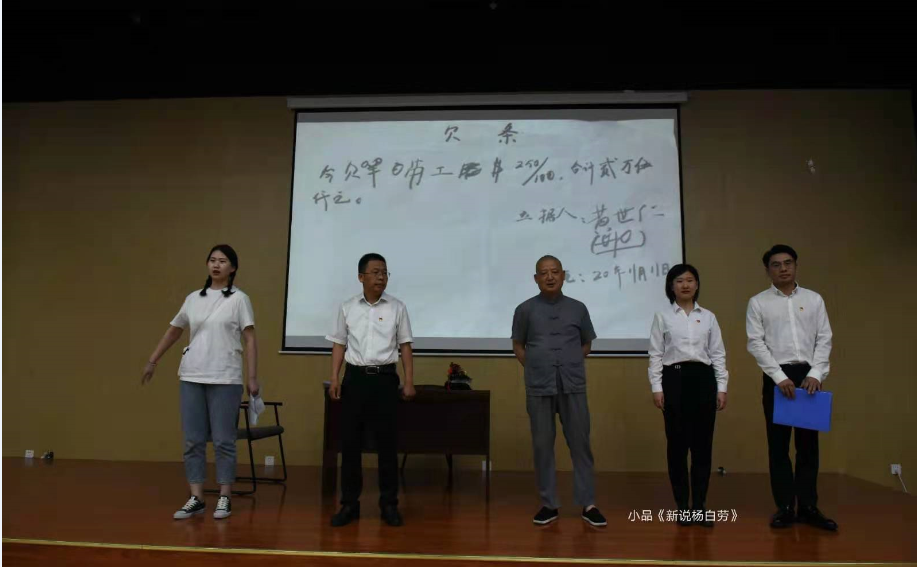 欠 条
今欠 日劳工 年 250/100,合计贰万伍
仟元。
立据人:黄世仁
:20年11月11日
小品《新说杨白劳》